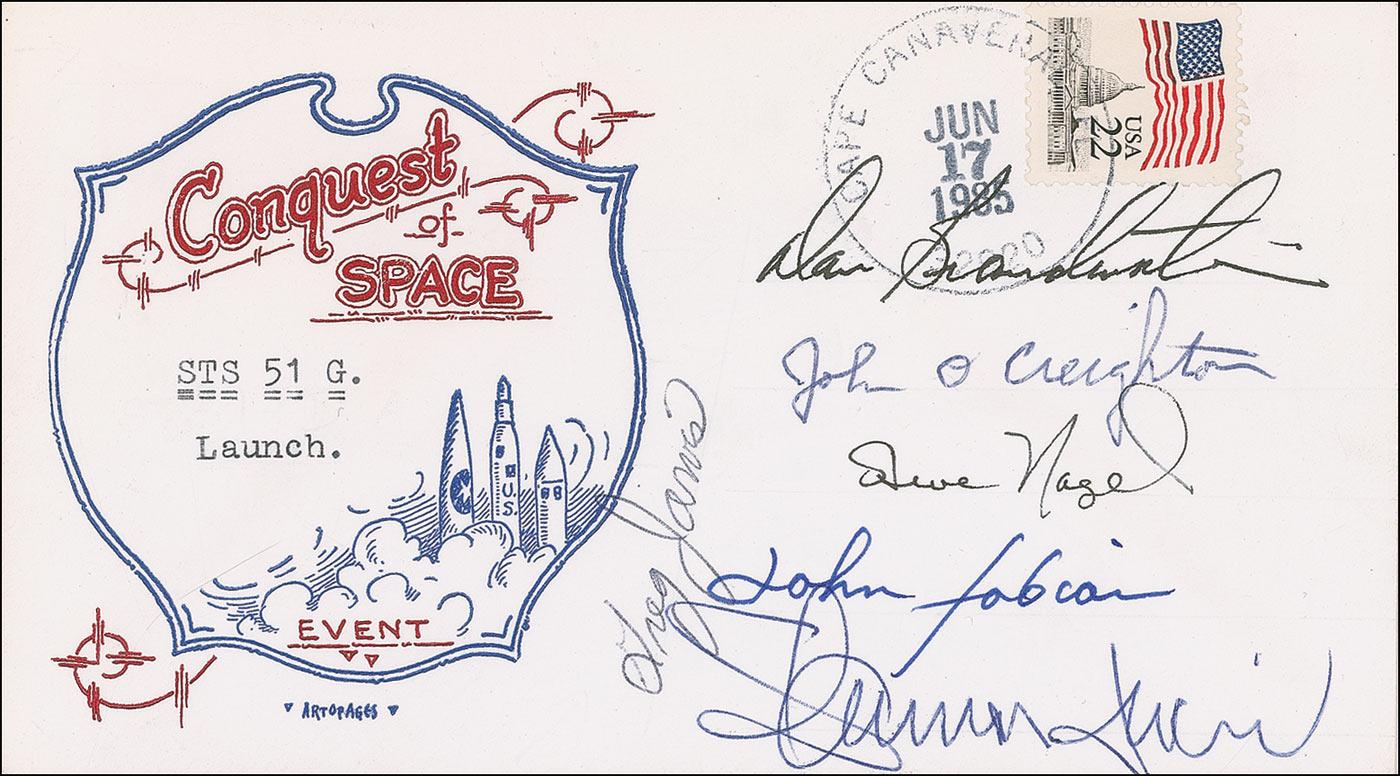 Conquest
of
SPACE
STS 51 G.
Launch.
U.S.
EVENT
ARTOPAGES
CAPE CANAVERAL
JUN
17
1985
USA
22
Dan Brandenstein
John O Creighton
Steve Nagel
John Fabian
Greg Jarvis